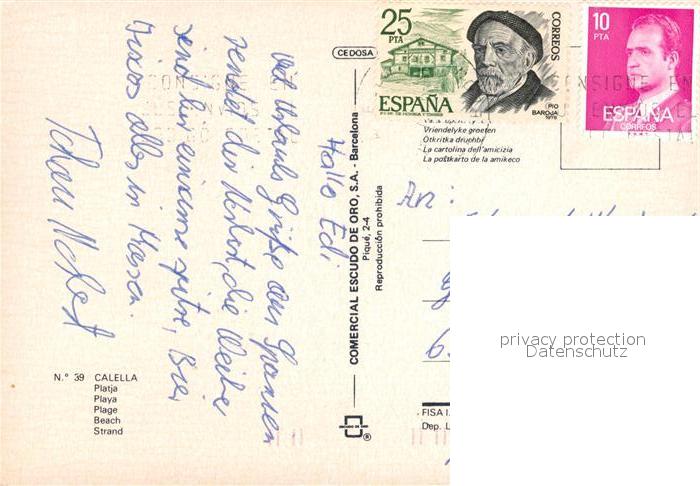 25
PTA
CORREOS
PIO
BAROJA
1978
ESPAÑA
10
PTA
ESPAÑA
CORREOS
CEDOSA
CONSIGNE EN
Vriendelyke groeten
Otkritka druzhbi
La cartolina dell'amicizia
La poŝtkarto de la amikeco
COMERCIAL ESCUDO DE ORO, S.A. - Barcelona
Piqué, 2-4
Reproducción prohibida
Hallo Edi
Viel Urlaubs Grüße aus Spanien
sendet dir Norbert, die Weiber
sind hier einsame spitze, Bier
alles in Massen.
Norbert
An:
privacy protection
Datenschutz
N.° 39 CALELLA
Platja
Playa
Plage
Beach
Strand
FISA I.
Dep. L
®